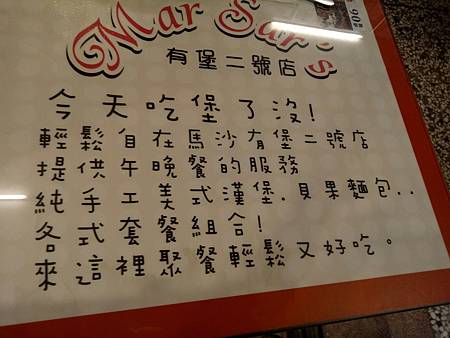 Mar Sar's
有堡二號店
今天吃堡了沒!
輕鬆自在馬沙有堡二號店
提供午晚餐的服務
純手工美式漢堡.貝果麵包..
各式套餐組合!
來這裡聚餐輕鬆又好吃。
90